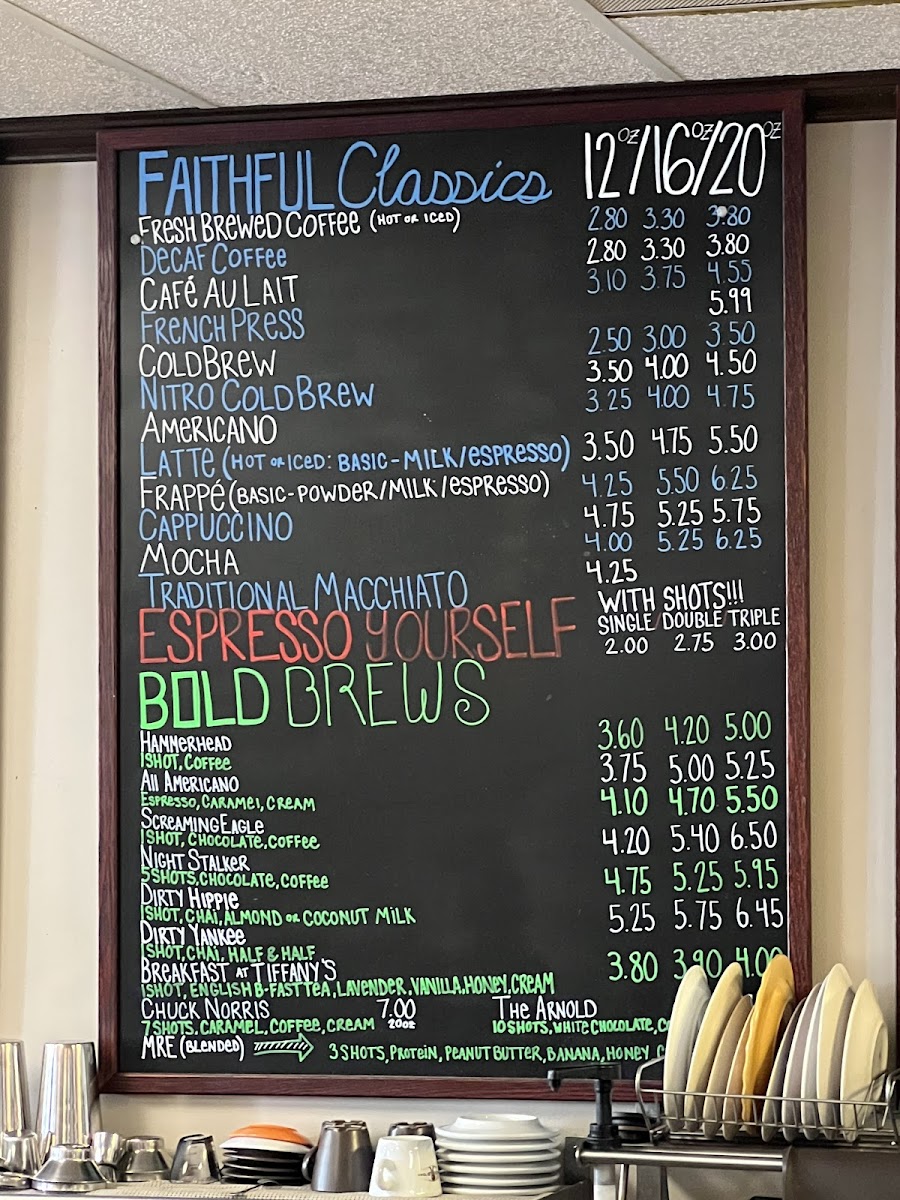 FAITHFUL Classics 12oz/16oz/20oz
FRESH BREWED COFFEE (HOT OR ICED) 2.80 3.30 3.80
DECAF COFFEE 2.80 3.30 3.80
CAFÉ AU LAIT 3.10 3.75 4.55
FRENCH PRESS 5.99
COLD BREW 2.50 3.00 3.50
NITRO COLD BREW 3.50 4.00 4.50
AMERICANO 3.25 4.00 4.75
LATTE (HOT OR ICED: BASIC - MILK/ESPRESSO) 3.50 4.75 5.50
FRAPPÉ (BASIC - POWDER/MILK/ESPRESSO) 4.25 5.50 6.25
CAPPUCCINO 4.75 5.25 5.75
MOCHA 4.00 5.25 6.25
TRADITIONAL MACCHIATO 4.25
ESPRESSO YOURSELF WITH SHOTS!!!
SINGLE/DOUBLE/TRIPLE
2.00 2.75 3.00
BOLD BREWS
HAMMERHEAD 3.60 4.20 5.00
1 SHOT, COFFEE
All AMERICANO 3.75 5.00 5.25
ESPRESSO, CARAMEL, CREAM
SCREAMING EAGLE 4.10 4.70 5.50
1 SHOT, CHOCOLATE, COFFEE
NIGHT STALKER 4.20 5.40 6.50
5 SHOTS, CHOCOLATE, COFFEE
DIRTY HIPPIE 4.75 5.25 5.95
1 SHOT, CHAI, ALMOND OR COCONUT MILK
DIRTY YANKEE 5.25 5.75 6.45
1 SHOT, CHAI, HALF & HALF
BREAKFAST AT TIFFANY'S 3.80 3.90 4.00
1 SHOT, ENGLISH B-FAST TEA, LAVENDER, VANILLA, HONEY, CREAM
CHUCK NORRIS 7.00 20oz THE ARNOLD
7 SHOTS, CARAMEL, COFFEE, CREAM 10 SHOTS, WHITE CHOCOLATE,
MRE (BLENDED) 3 SHOTS, PROTEIN, PEANUT BUTTER, BANANA, HONEY